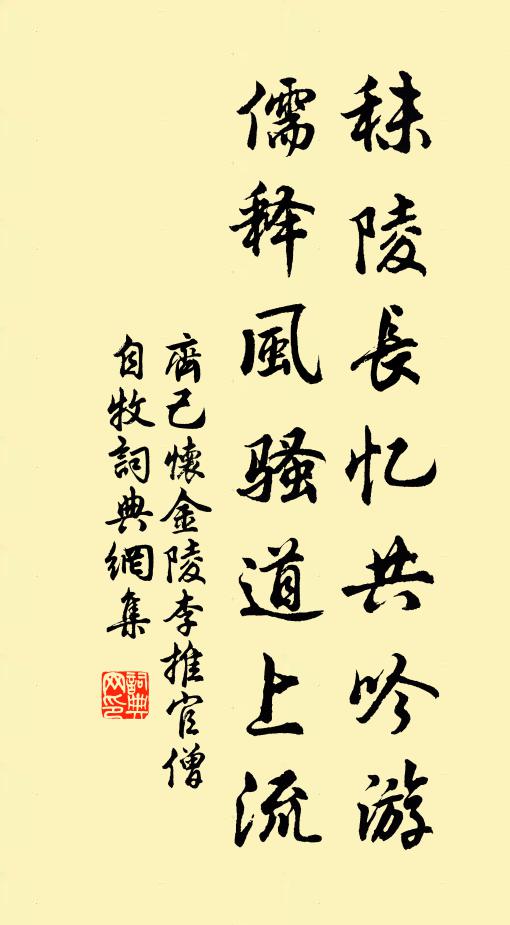 秣陵長忆共吟游
儒释風騷道上流
齊己懷金陵李推官僧
自牧詞典網集
詞典
网印